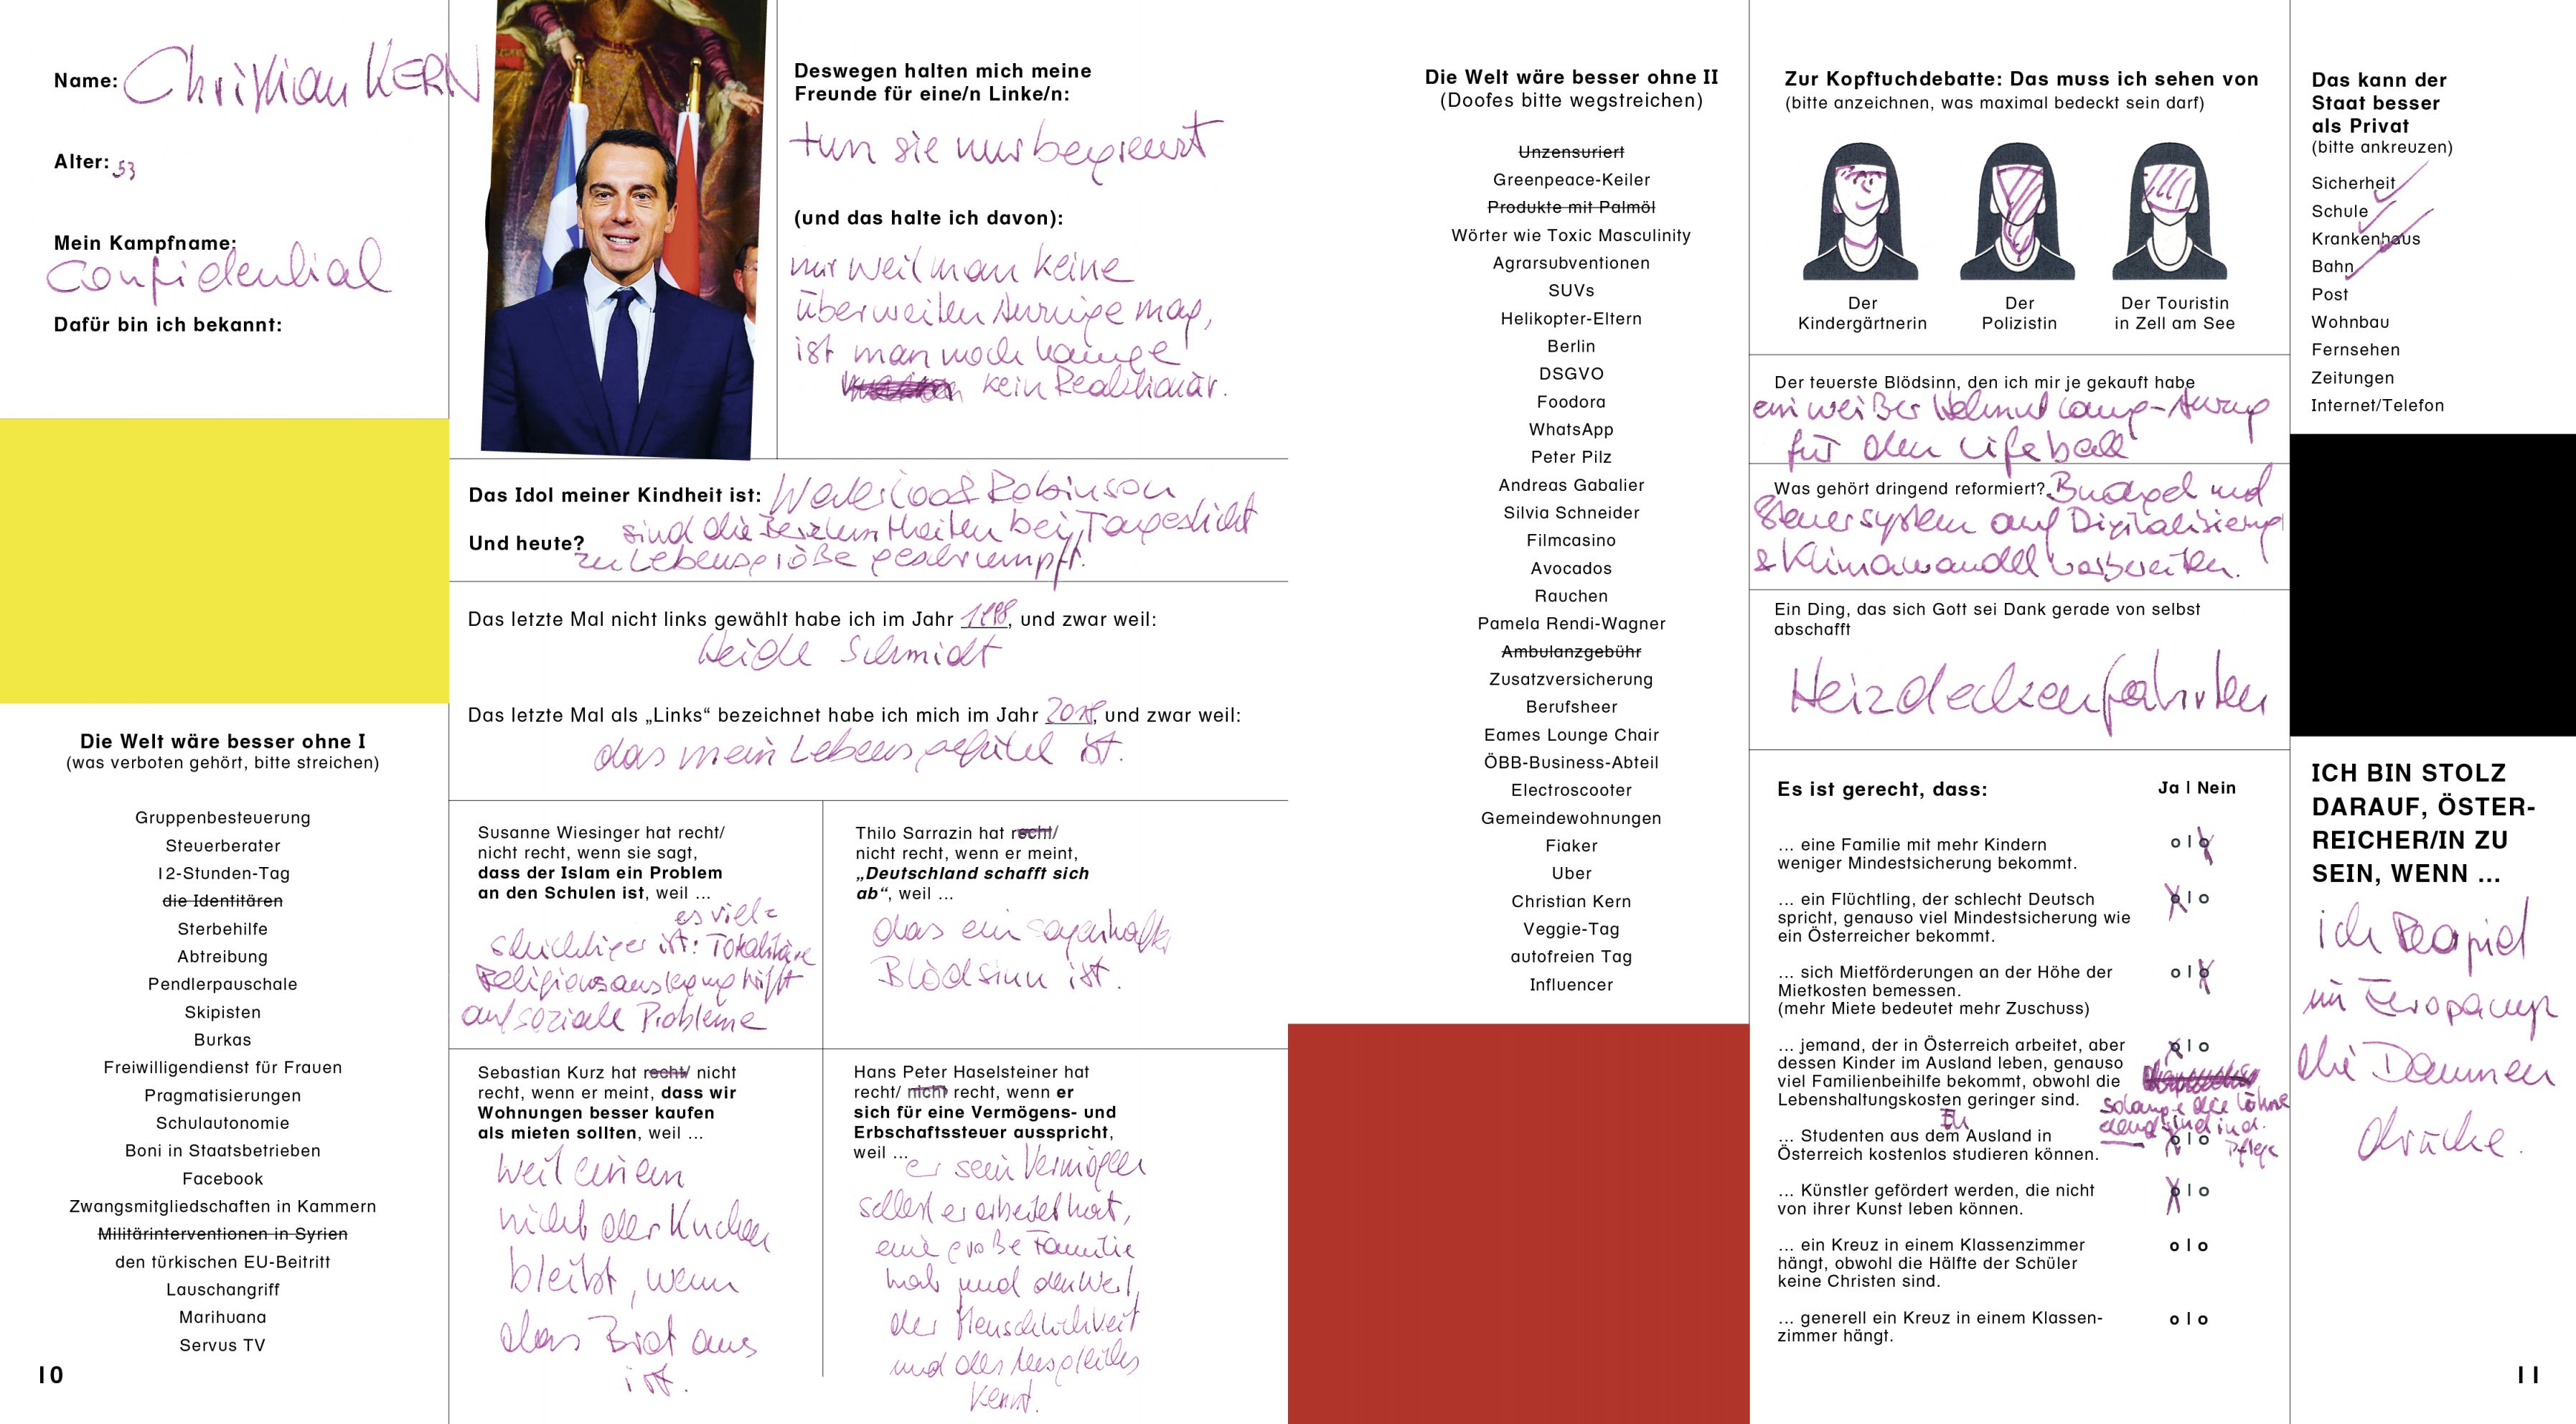 Name: Christian KERN
Alter: 53
Mein Kampfname:
Confidential
Dafür bin ich bekannt:
Die Welt wäre besser ohne I
(was verboten gehört, bitte streichen)
Gruppenbesteuerung
Steuerberater
12-Stunden-Tag
die Identitären
Sterbehilfe
Abtreibung
Pendlerpauschale
Skipisten
Burkas
Freiwilligendienst für Frauen
Pragmatisierungen
Schulautonomie
Boni in Staatsbetrieben
Facebook
Zwangsmitgliedschaften in Kammern
Militärinterventionen in Syrien
den türkischen EU-Beitritt
Lauschangriff
Marihuana
Servus TV
10
Deswegen halten mich meine
Freunde für eine/n Linke/n:
tun sie nur begrenzt
(und das halte ich davon):
nur weil man keine
überweiten Anzüge mag,
ist man noch lange
kein Reaktionär.
Das Idol meiner Kindheit ist: Waterloo & Robinson
Und heute? sind die Berzelmtheiten bei Tageslicht
zu Lebensgröße geschrumpft.
Das letzte Mal nicht links gewählt habe ich im Jahr 1998, und zwar weil:
Heide Schmidt
Das letzte Mal als „Links“ bezeichnet habe ich mich im Jahr 2018, und zwar weil:
das mein Lebensgefühl ist.
Susanne Wiesinger hat recht/
nicht recht, wenn sie sagt,
dass der Islam ein Problem
an den Schulen ist, weil ...
es viel-
schichtiger ist: Totalitäre
Religionsauslegung trifft
auf soziale Probleme
Thilo Sarrazin hat recht/
nicht recht, wenn er meint,
„Deutschland schafft sich
ab“, weil ...
das ein sagenhafter
Blödsinn ist.
Sebastian Kurz hat recht/ nicht
recht, wenn er meint, dass wir
Wohnungen besser kaufen
als mieten sollten, weil ...
weil einem
nicht der Kuchen
bleibt, wenn
das Brot aus
ist.
Hans Peter Haselsteiner hat
recht/ nicht recht, wenn er
sich für eine Vermögens- und
Erbschaftssteuer ausspricht,
weil ...
er sein Vermögen
selbst erarbeitet hat,
eine große Familie
hat und den Wert
der Menschlichkeit
und des Ausgleichs
kennt.
Die Welt wäre besser ohne II
(Doofes bitte wegstreichen)
Unzensuriert
Greenpeace-Keiler
Produkte mit Palmöl
Wörter wie Toxic Masculinity
Agrarsubventionen
SUVs
Helikopter-Eltern
Berlin
DSGVO
Foodora
WhatsApp
Peter Pilz
Andreas Gabalier
Silvia Schneider
Filmcasino
Avocados
Rauchen
Pamela Rendi-Wagner
Ambulanzgebühr
Zusatzversicherung
Berufsheer
Eames Lounge Chair
ÖBB-Business-Abteil
Electroscooter
Gemeindewohnungen
Fiaker
Uber
Christian Kern
Veggie-Tag
autofreien Tag
Influencer
Zur Kopftuchdebatte: Das muss ich sehen von
(bitte anzeichnen, was maximal bedeckt sein darf)
Der
Kindergärtnerin
Der
Polizistin
Der Touristin
in Zell am See
Der teuerste Blödsinn, den ich mir je gekauft habe
ein weißer Helmut Lang-Anzug
für den Lifeball
Was gehört dringend reformiert? Budget und
Steuersystem auf Digitalisierung
& Klimawandel vorbereiten.
Ein Ding, das sich Gott sei Dank gerade von selbst
abschafft
Heizdeckenfahrten
Es ist gerecht, dass: Ja | Nein
... eine Familie mit mehr Kindern
weniger Mindestsicherung bekommt. o | o
... ein Flüchtling, der schlecht Deutsch
spricht, genauso viel Mindestsicherung wie
ein Österreicher bekommt. o | o
... sich Mietförderungen an der Höhe der
Mietkosten bemessen.
(mehr Miete bedeutet mehr Zuschuss) o | o
... jemand, der in Österreich arbeitet, aber
dessen Kinder im Ausland leben, genauso
viel Familienbeihilfe bekommt, obwohl die
Lebenshaltungskosten geringer sind. o | o
solange die Löhne
elend sind in d.
Pflege
EU
... Studenten aus dem Ausland in
Österreich kostenlos studieren können. o | o
... Künstler gefördert werden, die nicht
von ihrer Kunst leben können. o | o
... ein Kreuz in einem Klassenzimmer
hängt, obwohl die Hälfte der Schüler
keine Christen sind. o | o
... generell ein Kreuz in einem Klassen-
zimmer hängt. o | o
Das kann der
Staat besser
als Privat
(bitte ankreuzen)
Sicherheit
Schule
Krankenhaus
Bahn
Post
Wohnbau
Fernsehen
Zeitungen
Internet/Telefon
ICH BIN STOLZ
DARAUF, ÖSTER-
REICHER/IN ZU
SEIN, WENN ...
ich Rapid
im Europacup
die Daumen
drücke.
11